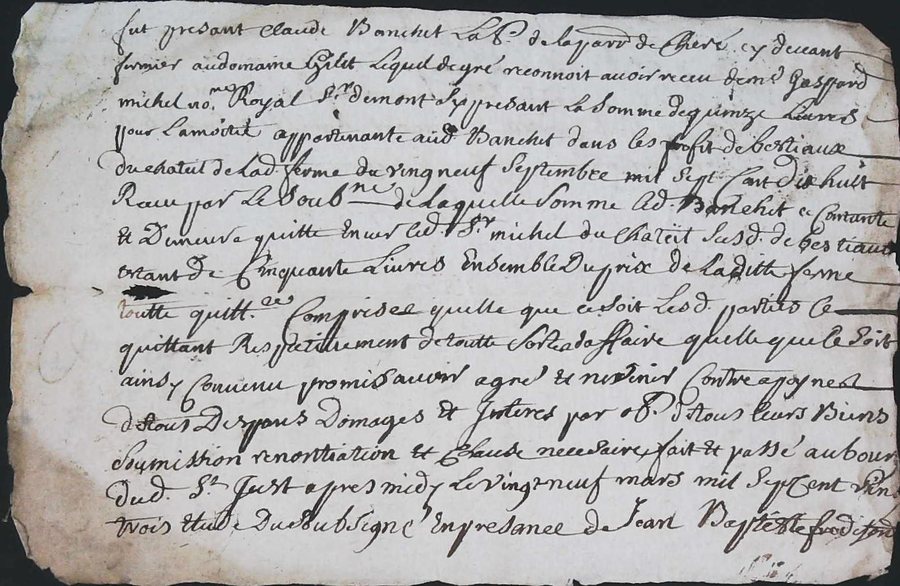 fut presant Claude Banchet La.r de laparr de Cheré cy devant
fermier audomaine Gilit Lequel degré reconnoit avoir receu de me Gaspard
michel no.re Royal Sr. demont Sy presant La Somme de quinze Livres
pour Lamoitié appartenante aud. Banchet dans les profit de bestiaux
du chateil de Lad. ferme du vingneuf Septembre mil Sept Cent Dixhuit
Receu par Le Soub.ne de Laquelle Somme Led. Banchet ce Contante
Et Demeure quitte Enver led. Sr. michel du Chateil Susd. de bestiaux
estant de Cinquante Livres Ensemble Du prix de Laditte ferme
toutte quitt.ce Comprisee quelle que ce Soit Lesd. parties Ce
quittant Respectivement de toutte Sorte daffaire quelle que Ce Soit
ainsy Convenu promis avoir agré Et ne venir Contre a poyne
de tous Depans Domages Et Interes par ob. de tous leurs Biens
Soumission renontiation Et Clause necessaire, fait Et passé aubour
Dud. St Just apres midy Le vingneuf mars mil Sept Cent Vin
trois Etude Du Soubsigné En presance de Jean Baptiste